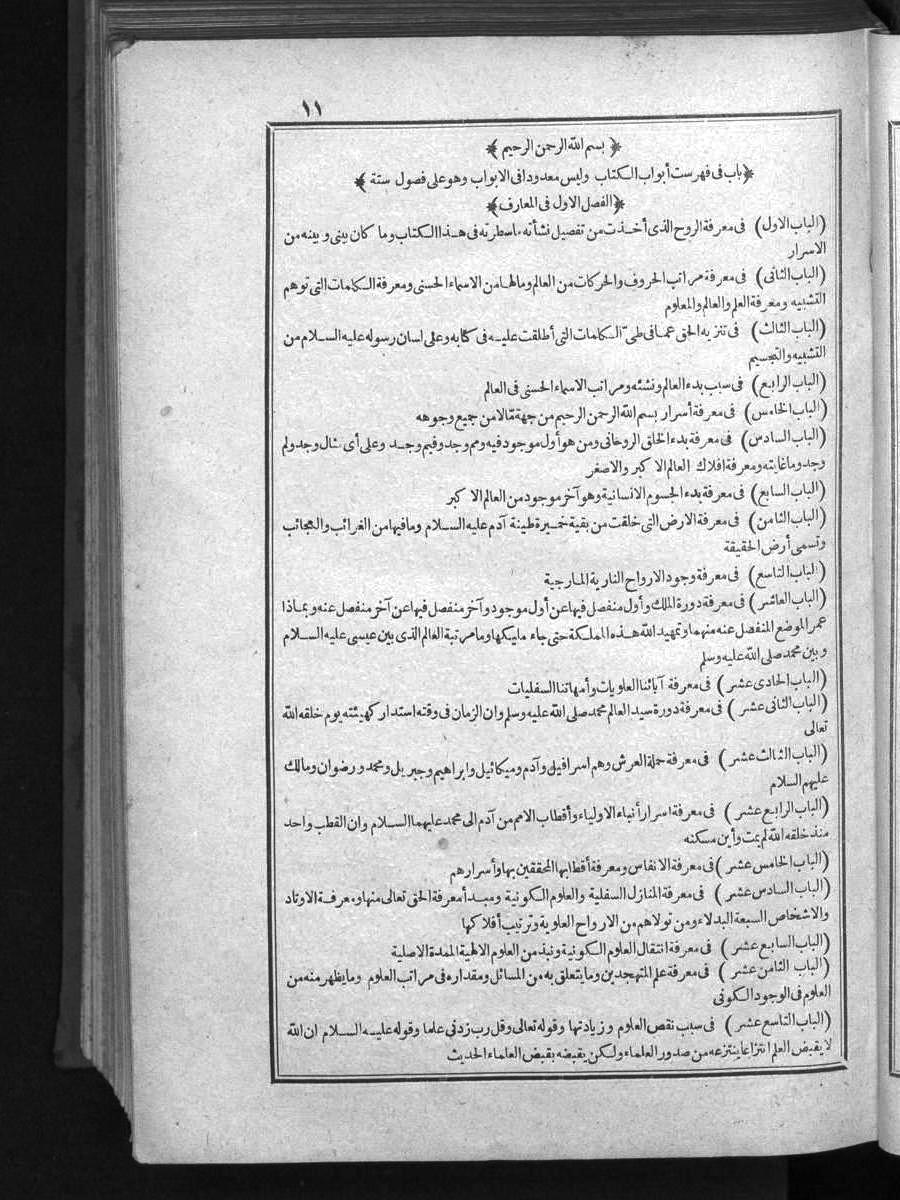 ١١
﴿ بسم الله الرحمن الرحيم ﴾
﴿ باب فى فهرست أبواب الكتاب وليس معدودا فى الابواب وهو على فصول ستة ﴾
﴿ الفصل الاول فى المعارف ﴾
(الباب الاول) فى معرفة الروح الذى أخذت من تفصيل نشأته ماسطرته فى هذا الكتاب وما كان بينى وبينه من
الاسرار
(الباب الثانى) فى معرفة مراتب الحروف والحركات من العالم ومالها من الاسماء الحسنى ومعرفة الكلمات التى توهم
التشبيه ومعرفة العلم والعالم والمعلوم
(الباب الثالث) فى تنزيه الحق عما فى طى الكلمات التى أطلقت عليه فى كتابه وعلى لسان رسوله عليه السلام من
التشبيه والتجسيم
(الباب الرابع) فى سبب بدء العالم ونشئه ومراتب الاسماء الحسنى فى العالم
(الباب الخامس) فى معرفة أسرار بسم الله الرحمن الرحيم من جهة ما لا من جميع وجوهه
(الباب السادس) فى معرفة بدء الخلق الروحانى ومن هو أول موجود فيه ومم وجد وفيم وجد وعلى أى مثال وجد ولم
وجد وما غايته ومعرفة افلاك العالم الاكبر والاصغر
(الباب السابع) فى معرفة بدء الجسوم الانسانية وهو آخر موجود من العالم الاكبر
(الباب الثامن) فى معرفة الارض التى خلقت من بقية خميرة طينة آدم عليه السلام وما فيها من الغرائب والعجائب
وتسمى أرض الحقيقة
(الباب التاسع) فى معرفة وجود الارواح النارية المارجية
(الباب العاشر) فى معرفة دورة الملك وأول منفصل فيها عن أول موجود وآخر منفصل فيها عن آخر منفصل عنه وبماذا
عمر الموضع المنفصل عنه منهما وتمهيد الله هذه المملكة حتى جاء مليكها وما مرتبة العالم الذى بين عيسى عليه السلام
وبين محمد صلى الله عليه وسلم
(الباب الحادى عشر) فى معرفة آبائنا العلويات وأمهاتنا السفليات
(الباب الثانى عشر) فى معرفة دورة سيد العالم محمد صلى الله عليه وسلم وان الزمان فى وقته استدار كهيئته يوم خلقه الله
تعالى
(الباب الثالث عشر) فى معرفة حملة العرش وهم اسرافيل وآدم وميكائيل وابراهيم وجبريل ومحمد ورضوان ومالك
عليهم السلام
(الباب الرابع عشر) فى معرفة اسرار أنبياء الاولياء وأقطاب الامم من آدم الى محمد عليهما السلام وان القطب واحد
منذ خلقه الله لم يمت وأين مسكنه
(الباب الخامس عشر) فى معرفة الانفاس ومعرفة أقطابها المحققين بها وأسرارهم
(الباب السادس عشر) فى معرفة المنازل السفلية والعلوم الكونية ومبدأ معرفة الحق تعالى منها ومعرفة الاوتاد
والاشخاص السبعة البدلاء ومن تولاهم من الارواح العلوية وترتيب أفلاكها
(الباب السابع عشر) فى معرفة انتقال العلوم الكونية ونبذ من العلوم الالهية الممدة الاصلية
(الباب الثامن عشر) فى معرفة علم المتهجدين وما يتعلق به من المسائل ومقداره فى مراتب العلوم وما يظهر منه من
العلوم فى الوجود الكونى
(الباب التاسع عشر) فى سبب نقص العلوم وزيادتها وقوله تعالى وقل رب زدنى علما وقوله عليه السلام ان الله
لا يقبض العلم انتزاعا ينتزعه من صدور العلماء ولكن يقبضه بقبض العلماء الحديث